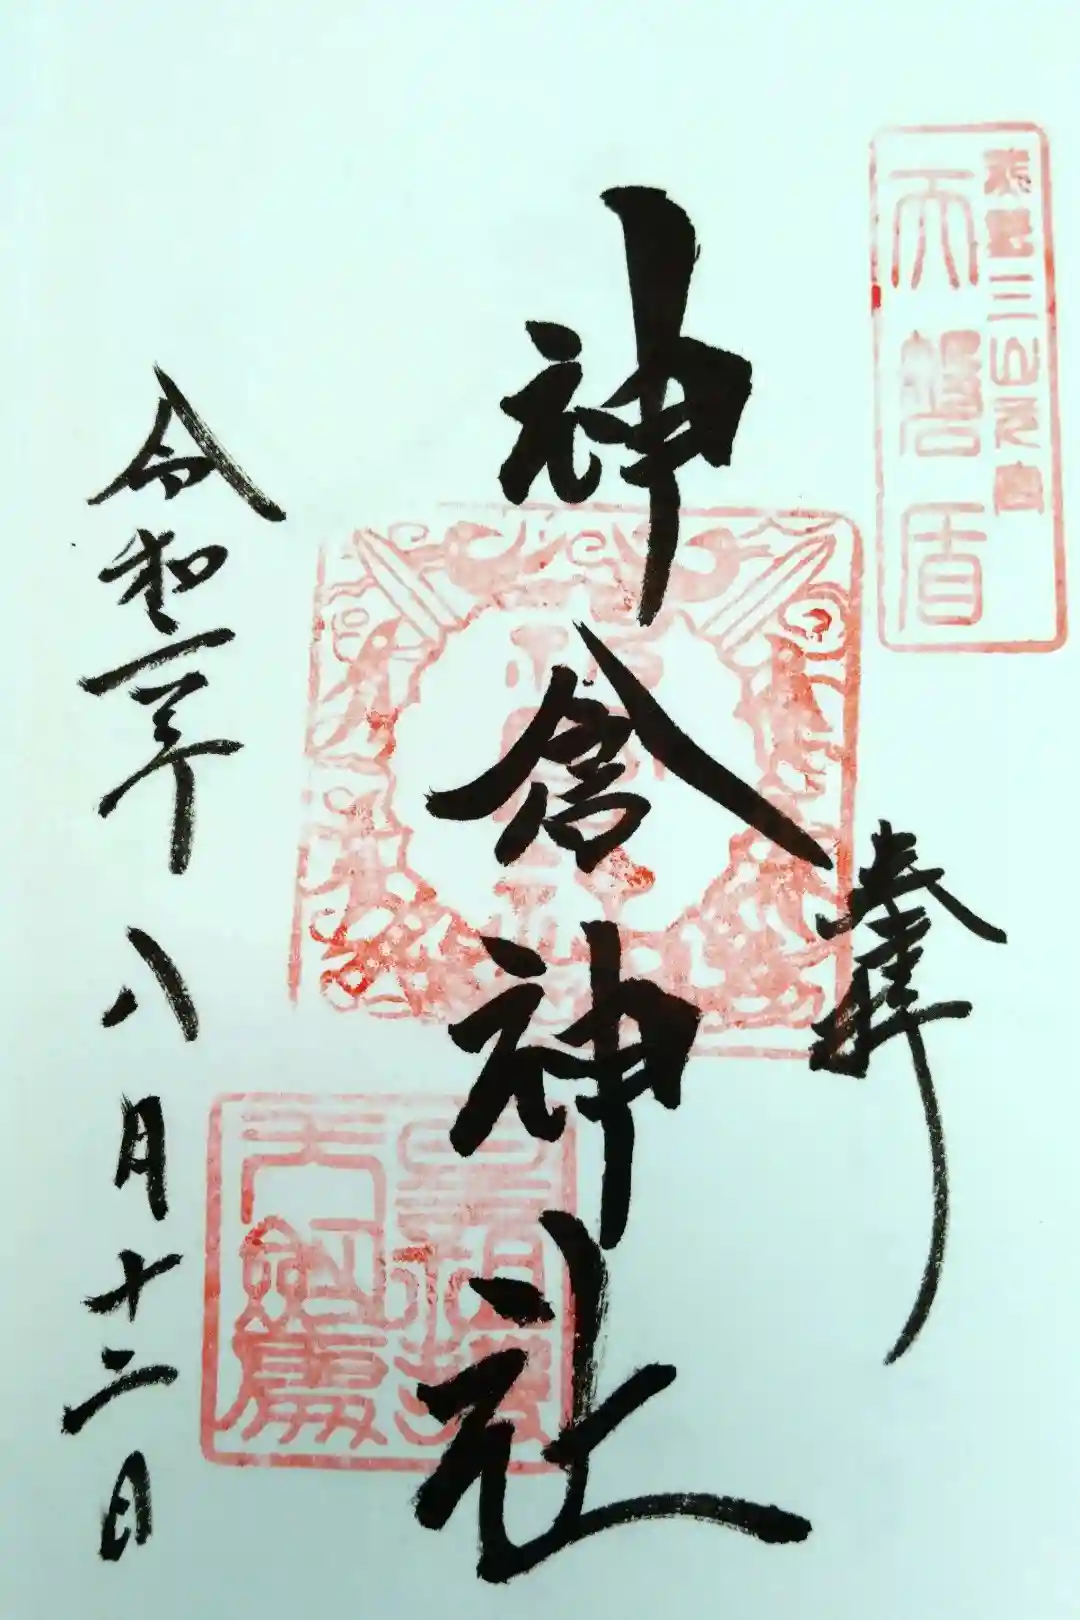 熊野三山元宮
天磐盾
奉拝
神倉神社
令和二年八月十二日